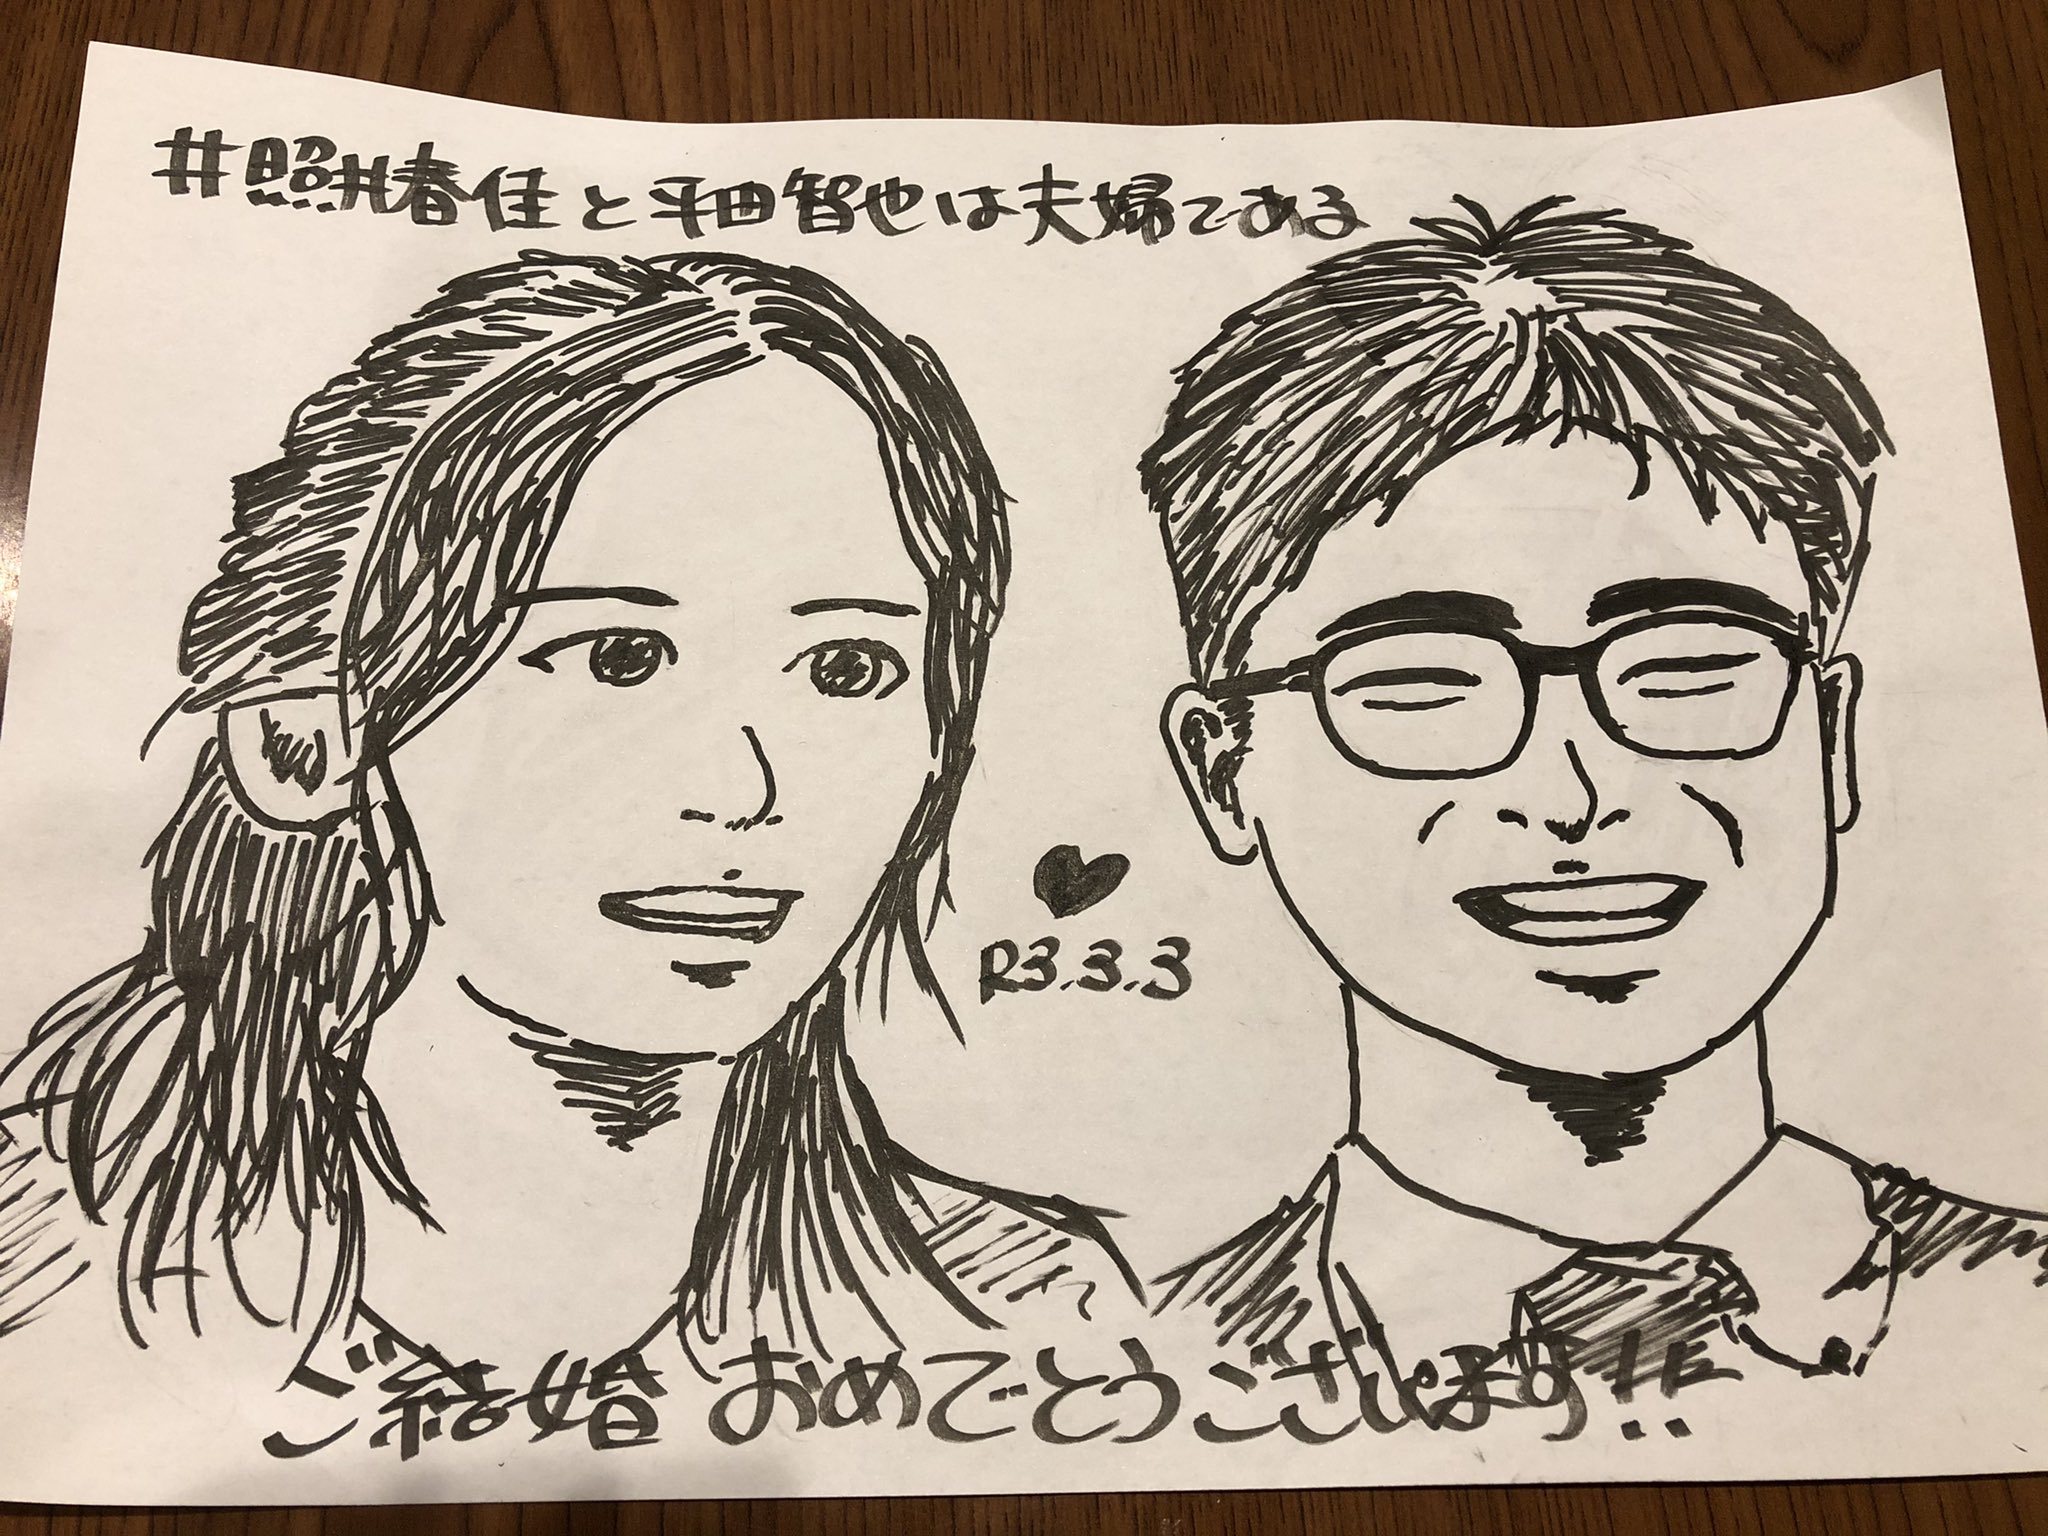 #照井春佳と平田智也は夫婦である
R3.3.3
ご結婚おめでとうございます!!